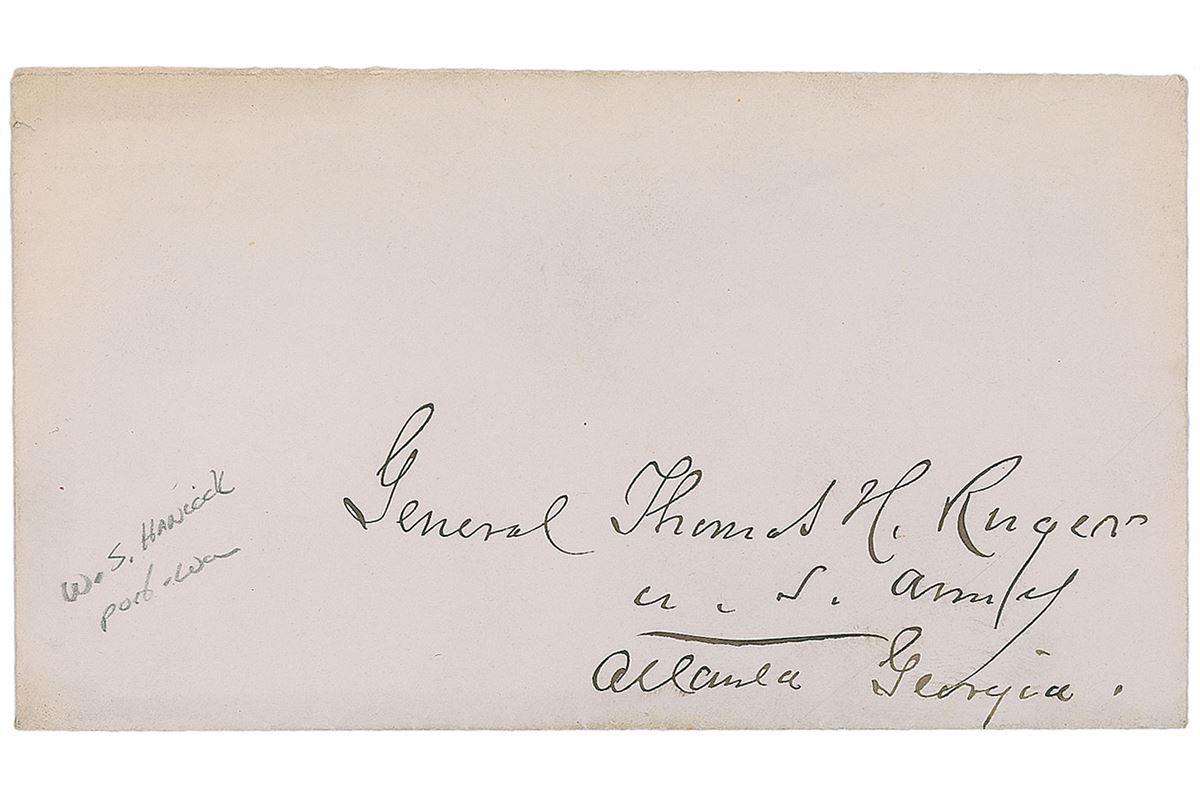 General Thomas H. Ruger
U. S. Army
Atlanta Georgia.
W. S. Hancock
post-war